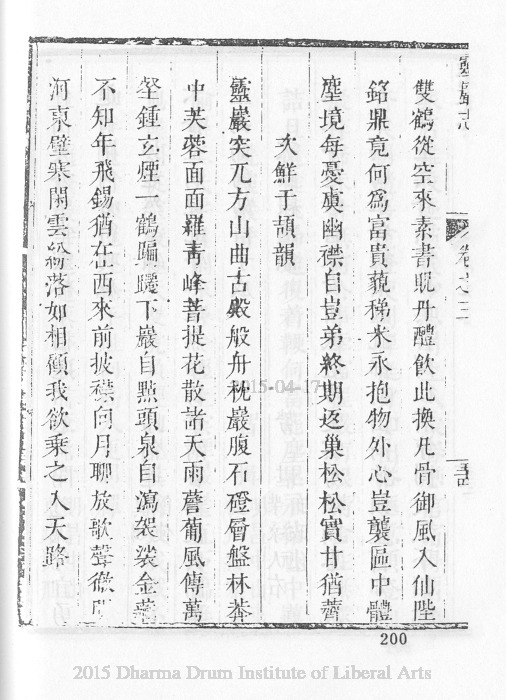 靈巖志
卷之三
雙鶴從空來素書貺丹醴飲此換凡骨御風入仙陛
銘鼎竟何為富貴藐稊米永抱物外心豈襲區中體
塵境每憂虞幽襟自豈弟終期返巢松松實甘猶薺
次鮮于頡韻
靈巖突兀方山曲古殿般舟枕巖腹石磴層盤林莽
中芙蓉面面羅青峰菩提花散諸天雨薝蔔風傳萬
壑鍾立煙一鶴蹁躚下巖自點頭泉自瀉袈裟金
不知年飛錫猶在西來前披襟向月聊放歌聲徹
河東璧寒閒雲紛落如相顧我欲乘之入天路
200
2015-04-17
2015 Dharma Drum Institute of Liberal Arts